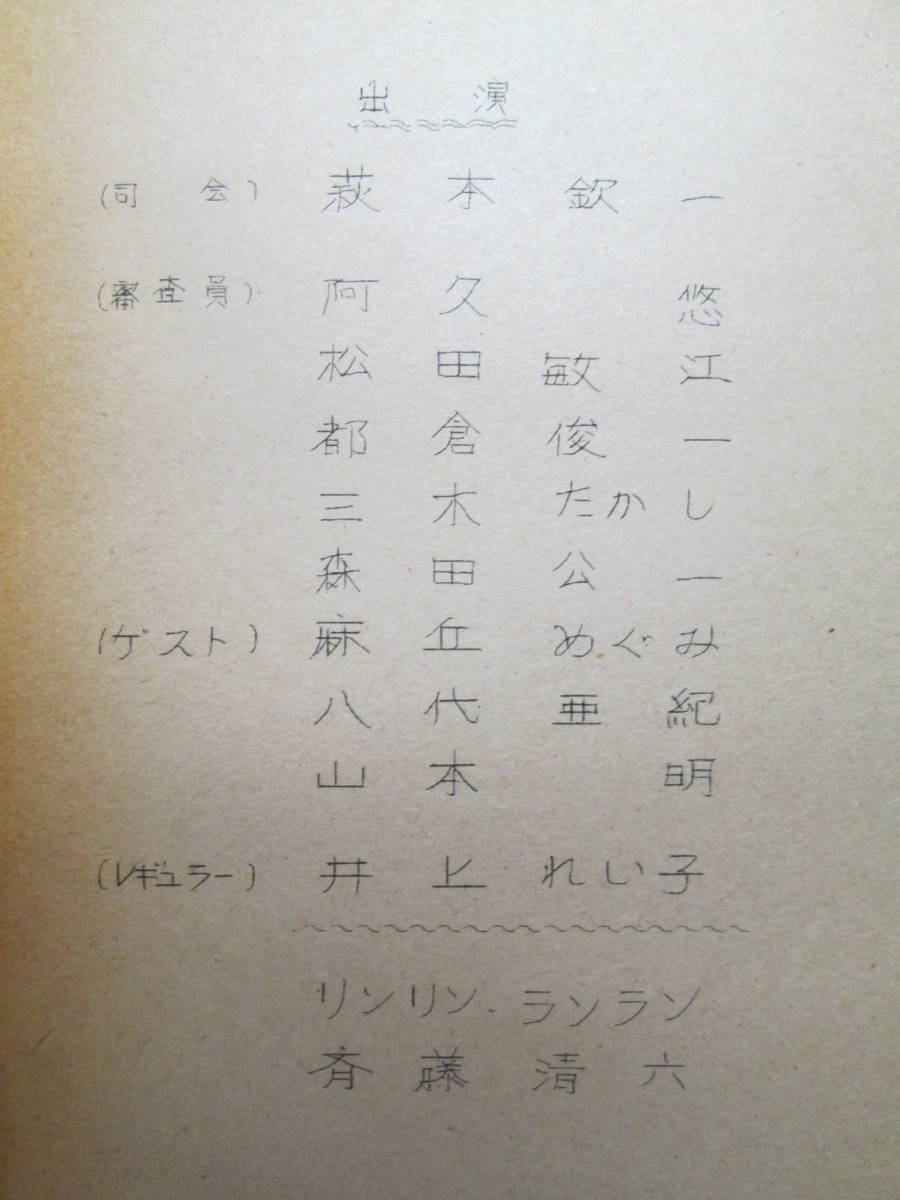 出演
(司会) 萩本欽一
(審査員) 阿久悠
松田敏江
都倉俊一
三木たかし
森田公一
(ゲスト) 麻丘めぐみ
八代亜紀
山本明
(レギュラー) 井上れい子
リンリン.ランラン
斉藤清六